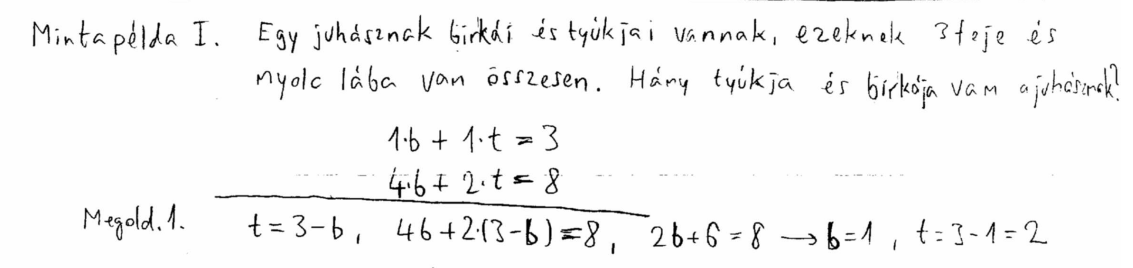 Mintapélda I. Egy juhásznak birkái és tyúkjai vannak, ezeknek 3 feje és
nyolc lába van összesen. Hány tyúkja és birkája vam a juhásznak?
1·b + 1·t = 3
4·b + 2·t = 8
Megold.1. t = 3-b, 4b+2·(3-b)=8, 2b+6=8 → b=1, t=3-1=2